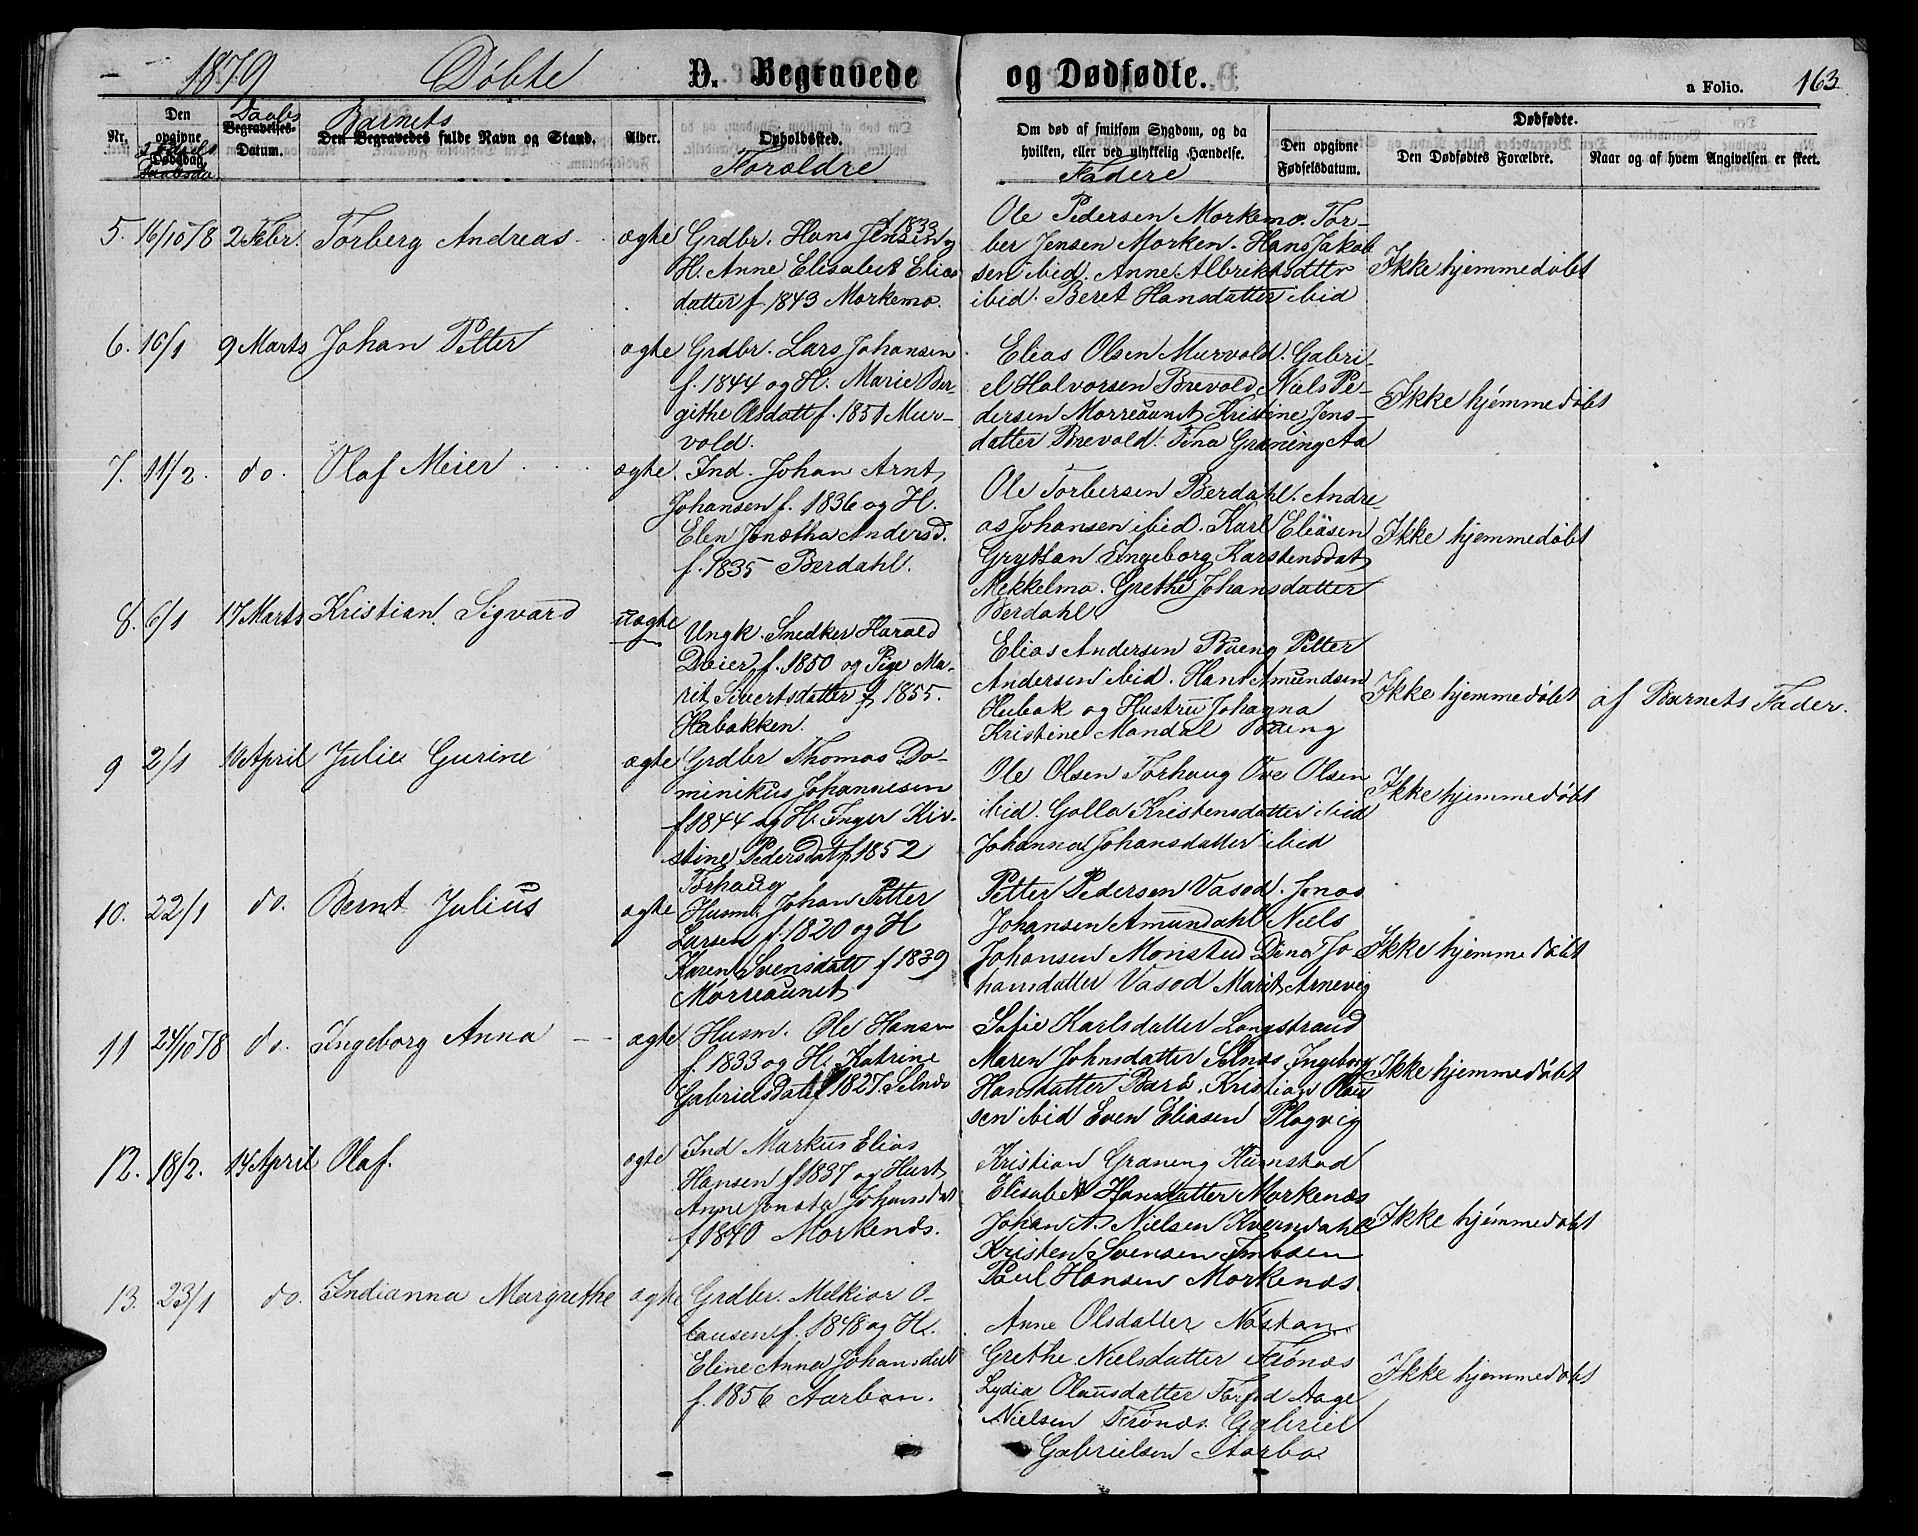 1879 Döbte D. Begravede og Dødfødte. a Folio. 163
Nr.
Den opgivne Dødsdag.
Daabs
Begravelses-
Datum.
Barnets
Den Begravedes fulde Navn og Stand.
Alder.
Opholdssted.
Foroldre
Om død af smitsom Sygdom, og da
hvilken, eller ved ulykkelig Hændelse.
Fadere
Dødfødte.
Den opgivne
Fødselsdatum.
Den Dødfødtes Forældre.
Naar og af hvem Angivelsen er skeet.
5. 16/10 78 2 Febr. Torberg Andreas ægte
Grdbr. Hans Jensen f 1833 og
H. Anne Elisabet Elias
datter f 1843 Morkemo.
Ole Pedersen Morkemo. Tor-
ber Jensen Morken. Hans Jakob
sen ibid. Anne Albriktsdttr
ibid. Beret Hansdatter ibid
Ikke hjemmedøbt
6. 16/1 9 Marts Johan Petter ægte
Grdbr. Lars Johansen
f. 1844 og H. Marie Ber-
githe Olsdatt f. 1851 Mur-
vold.
Elias Olsen Murvold. Gabri-
el Halvorsen Brevold, Niels Pe-
dersen Morreaunet Kristine Jens-
datter Brevold. Tina Graning Aa
Ikke hjemmedøbt
7. 11/2. do. Olaf Meier ægte
Ind. Johan Arnt
Johansen f. 1836 og H.
Elen Jonetha Andersd.
f. 1835 Berdahl.
Ole Torbersen Berdahl. Andre
as Johansen ibid. Karl Eliasen
Gryttan Ingeborg Karstensdat
Mekkelmo. Grethe Johansdatter
Berdahl
Ikke hjemmedøbt
8. 6/1 17 Marts Kristian Sigvard uægte
Ungk. Snedker Harald
Dreier f. 1850 og Pige Ma-
rit Sivertsdatter f 1855.
Habakken.
Elias Andersen Baeng Petter
Andersen ibid. Hans Amundsen
Hubak og Hustru Johanna
Kristine Mandal Baeng
Ikke hjemmedøbt af Barnets Fader.
9 2/1 10 April Julie Gurine ægte
Grdbr Thomas Do-
minikus Johannesen
f 1844 og H. Inger Kir-
stine Pedersdat f 1852
Torhaug
Ole Olsen Torhaug Ove Olsen
ibid. Golla Kristensdatter ibid
Johanna Johansdatter ibid
Ikke hjemmedøbt
10. 22/1 do. Bernt Julius ægte
Husm. Johan Petter
Larsen f. 1820 og H
Karen Svensdatt f 1839
Morreaunet
Petter Pedersen Vasod. Jonas
Johansen Amundahl Niels
Johansen Monstad Dina Jo
hansdatter Vasod Marit Arnevig
Ikke hjemmedøbt
11 24/10 78 do. Ingeborg Anna ægte
Husm. Ole Hansen
f. 1833 og H. Katrine
Gabrielsdat f 1827. Selnes
Sofie Karlsdatter Langstrand
Maren Johnsdatter Selnes, Ingeborg
Hansdatter Barø. Kristian Olau
sen ibid Even Eliasen Plogvig
Ikke hjemmedøbt
12. 18/2. 14 April Olaf. ægte
Ind Markus Elias
Hansen f 1837 og Hust
Anne Joneta Johansdat
f 1840 Morkenes.
Kristian Graneng Humstad
Elisabet Hansdatter Morkenes
Johan A. Nielsen Kverndahl
Kristen Svensen
Paul Hansen Morkenes.
Ikke hjemmedøbt
13. 23/1 do. Indianna Margrethe ægte
Grdbr. Melkior O-
lausen f. 1848 og H.
Eline Anna Johansdatt
f. 1856 Aarbon.
Anne Olsdatter Nøstan
Grethe Nielsdatter Frønes
Lydia Olausdatter Aage
Nielsen Frønes. Gabriel
Gabrielsen Aarbo
Ikke hjemmedøbt